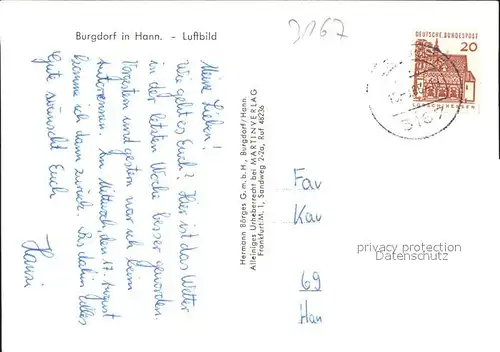 Burgdorf in Hann. - Luftbild
3167
DEUTSCHE BUNDESPOST
20
LORSCH/HESSEN
3167
Meine Lieben!
Wie geht es Euch? Hier ist das Wetter
in der letzten Woche besser geworden.
Vorgestern und gestern war ich beim
Autorennen. Am Mittwoch, den 17. August
komme ich dann zurück. Bis dahin Alles
Gute wünscht Euch
Hansi
Hermann Börges G.m.b.H., Burgdorf/Hann.
Alleiniges Urheberrecht bei MARTINVERLAG
Frankfurt/M.1, Sandweg 2-2a, Ruf 46236
Fav
Kav
69
Han
privacy protection
Datenschutz